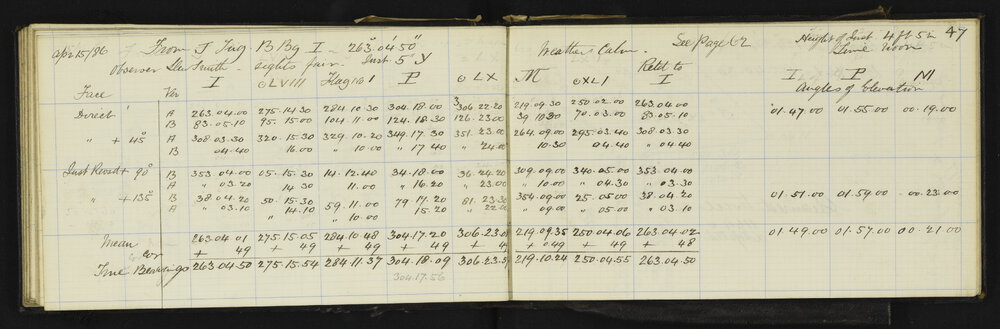 47
Apr 15/96 From J Trig B Bg I = 263° 04' 50" Weather Calm. See Page 62 Height of Inst 4 ft 5 in
Observer Smith sights fair. Inst. 5" Y Time Noon
Face Ver I o LVIII Flag no 1 P o LX M o XLI Retd to I I P M
Angles of Elevation
Direct A 263.04.00 275.14.30 284.10.30 304.18.00 306.22.20 219.09.30 250.02.00 263.04.00 01.47.00 01.55.00 00.19.00
B 83.05.10 95.15.00 104.11.00 124.18.30 126.23.00 39 10 20 70.03.00 83.05.10
" + 45° A 308 03.30 320.15.30 329.10.20 349.17.30 351.23.00 264.09.00 295.03.40 308 03.30
B 04.40 16.00 " 10.00 " 17 40 " 24.00 10.30 04.40 " 04.40
Inst Revsd + 90° B 353 04.00 05.15.30 14.12.40 34.18.00 36.24.20 309.09.00 340.05.00 353.04.00
A " 03.20 14 30 11.00 " 16.20 " 23.00 " 10.00 " 04.30 " 03.30
" + 135° B 38 04.20 50.15.30 59.11.00 79 17.20 81.23.30 354.09.00 25.05.00 38.04.20 01.51.00 01.59.00 00.23.00
A " 03.10 " 14.10 " 10.00 15.20 " 22.00 " 09.00 " 05.00 " 03.10
Mean 263.04 01 275.15.05 284.10.48 304.17.20 306.23.0 219.09.35 250.04.06 263.04.02 01.49.00 01.57.00 00.21.00
cor + 49 + 49 + 49 + 49 + 49 + 049 + 49 + 48
True Bearings 263.04.50 275.15.54 284.11.37 304.18.09 306.23.5 219.10.24 250.04.55 263.04.50
304.17.56